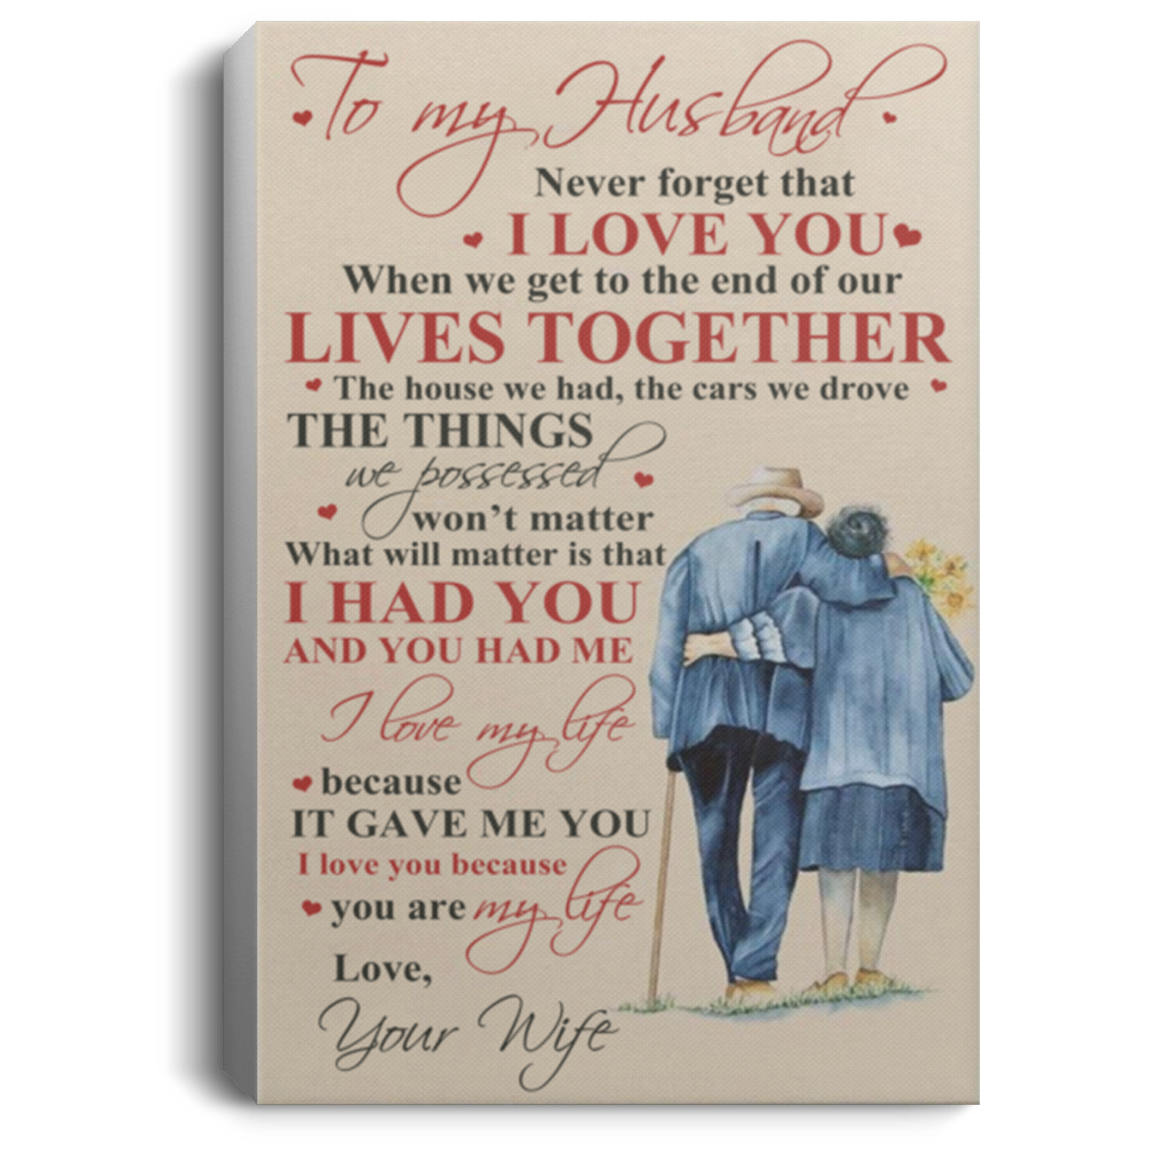 To my Husband
Never forget that
I LOVE YOU
When we get to the end of our
LIVES TOGETHER
The house we had, the cars we drove
THE THINGS
we possessed
won't matter
What will matter is that
I HAD YOU
AND YOU HAD ME
I love my life
because
IT GAVE ME YOU
I love you because
you are my life
Love,
Your Wife